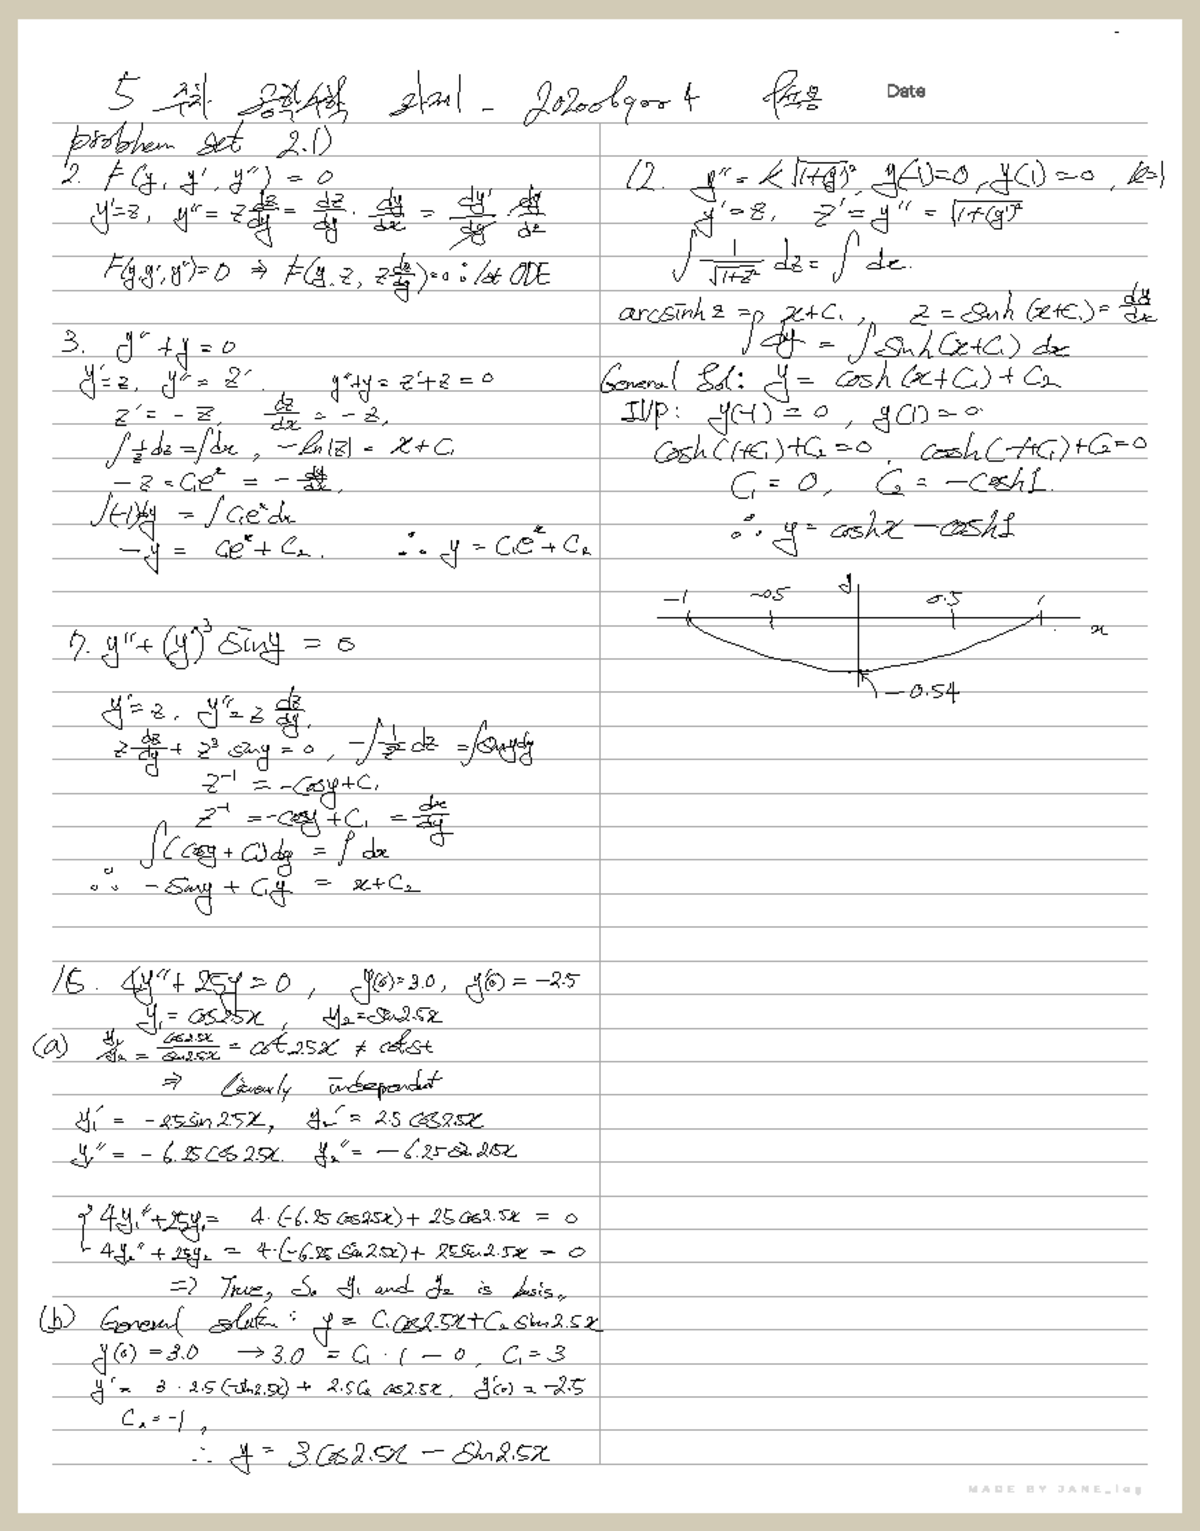 5 주차 공학수학 과제 -
Date
problem set 2.1)
2. F(y, y', y'') = 0
y'=z, y''= z dz/dy = dz/dy · dy/dx = dy'/dy · dy/dx
F(y,y',y'')=0 ⇒ F(y, z, z dz/dy)=0 ∴ 1st ODE
3. y''+y=0
y'=z, y''= z'. y''+y = z'+z = 0
z' = -z, dz/dx = -z,
∫ 1/z dz = ∫dx, -ln|z| = x+C₁
-z = C₁eˣ = - dy/dx,
∫(-1)dy = ∫C₁eˣdx
-y = C₁eˣ + C₂. ∴ y = C₁eˣ + C₂
7. y''+(y')³ siny = 0
y'=z, y''= z dz/dy.
z dz/dy + z³ siny = 0, -∫ 1/z² dz = ∫sinydy
z⁻¹ = -cosy+C₁
z⁻¹ = -cosy + C₁ = dx/dy
∫(cosy + C₁)dy = ∫ dx
∴ -siny + C₁y = x+C₂
15. 4y''+25y=0, y(0)=3.0, y'(0) = -2.5
y₁ = cos2.5x, y₂=sin2.5x
(a) y₁/y₂ = cos2.5x/sin2.5x = cot 2.5x ≠ const
⇒ Linearly independent
y₁' = -2.5sin2.5x, y₂' = 2.5cos2.5x
y₁'' = -6.25cos2.5x. y₂'' = -6.25sin2.5x
4y₁''+25y₁= 4·(-6.25cos2.5x)+25cos2.5x = 0
4y₂''+25y₂ = 4·(-6.25sin2.5x)+25sin2.5x = 0
=> True, So y₁ and y₂ is basis.
(b) General solution: y = C₁cos2.5x+C₂sin2.5x
y(0)=3.0 → 3.0 = C₁·1-0, C₁=3
y' = 3·2.5(-sin2.5x)+2.5C₂ cos2.5x, y'(0)=-2.5
C₂=-1,
∴ y = 3cos2.5x - sin2.5x
12. y''=k√(1+y')², y(-1)=0, y(1)=0, k=1
y'=z, z'=y''=√1+(y')²
∫ 1/√1+z² dz = ∫ dx.
arcsinh z = x+C₁, z = sinh(x+C₁) = dy/dx
∫dy = ∫ sinh(x+C₁) dx
General Sol: y = cosh(x+C₁)+C₂
IVP: y(-1)=0, y(1)=0.
cosh(1+C₁)+C₂=0, cosh(-1+C₁)+C₂=0
C₁ = 0, C₂ = -cosh1.
∴ y = coshx - cosh1
y
-1 -0.5 0.5 1
x
-0.54
MADE BY JANE_lag